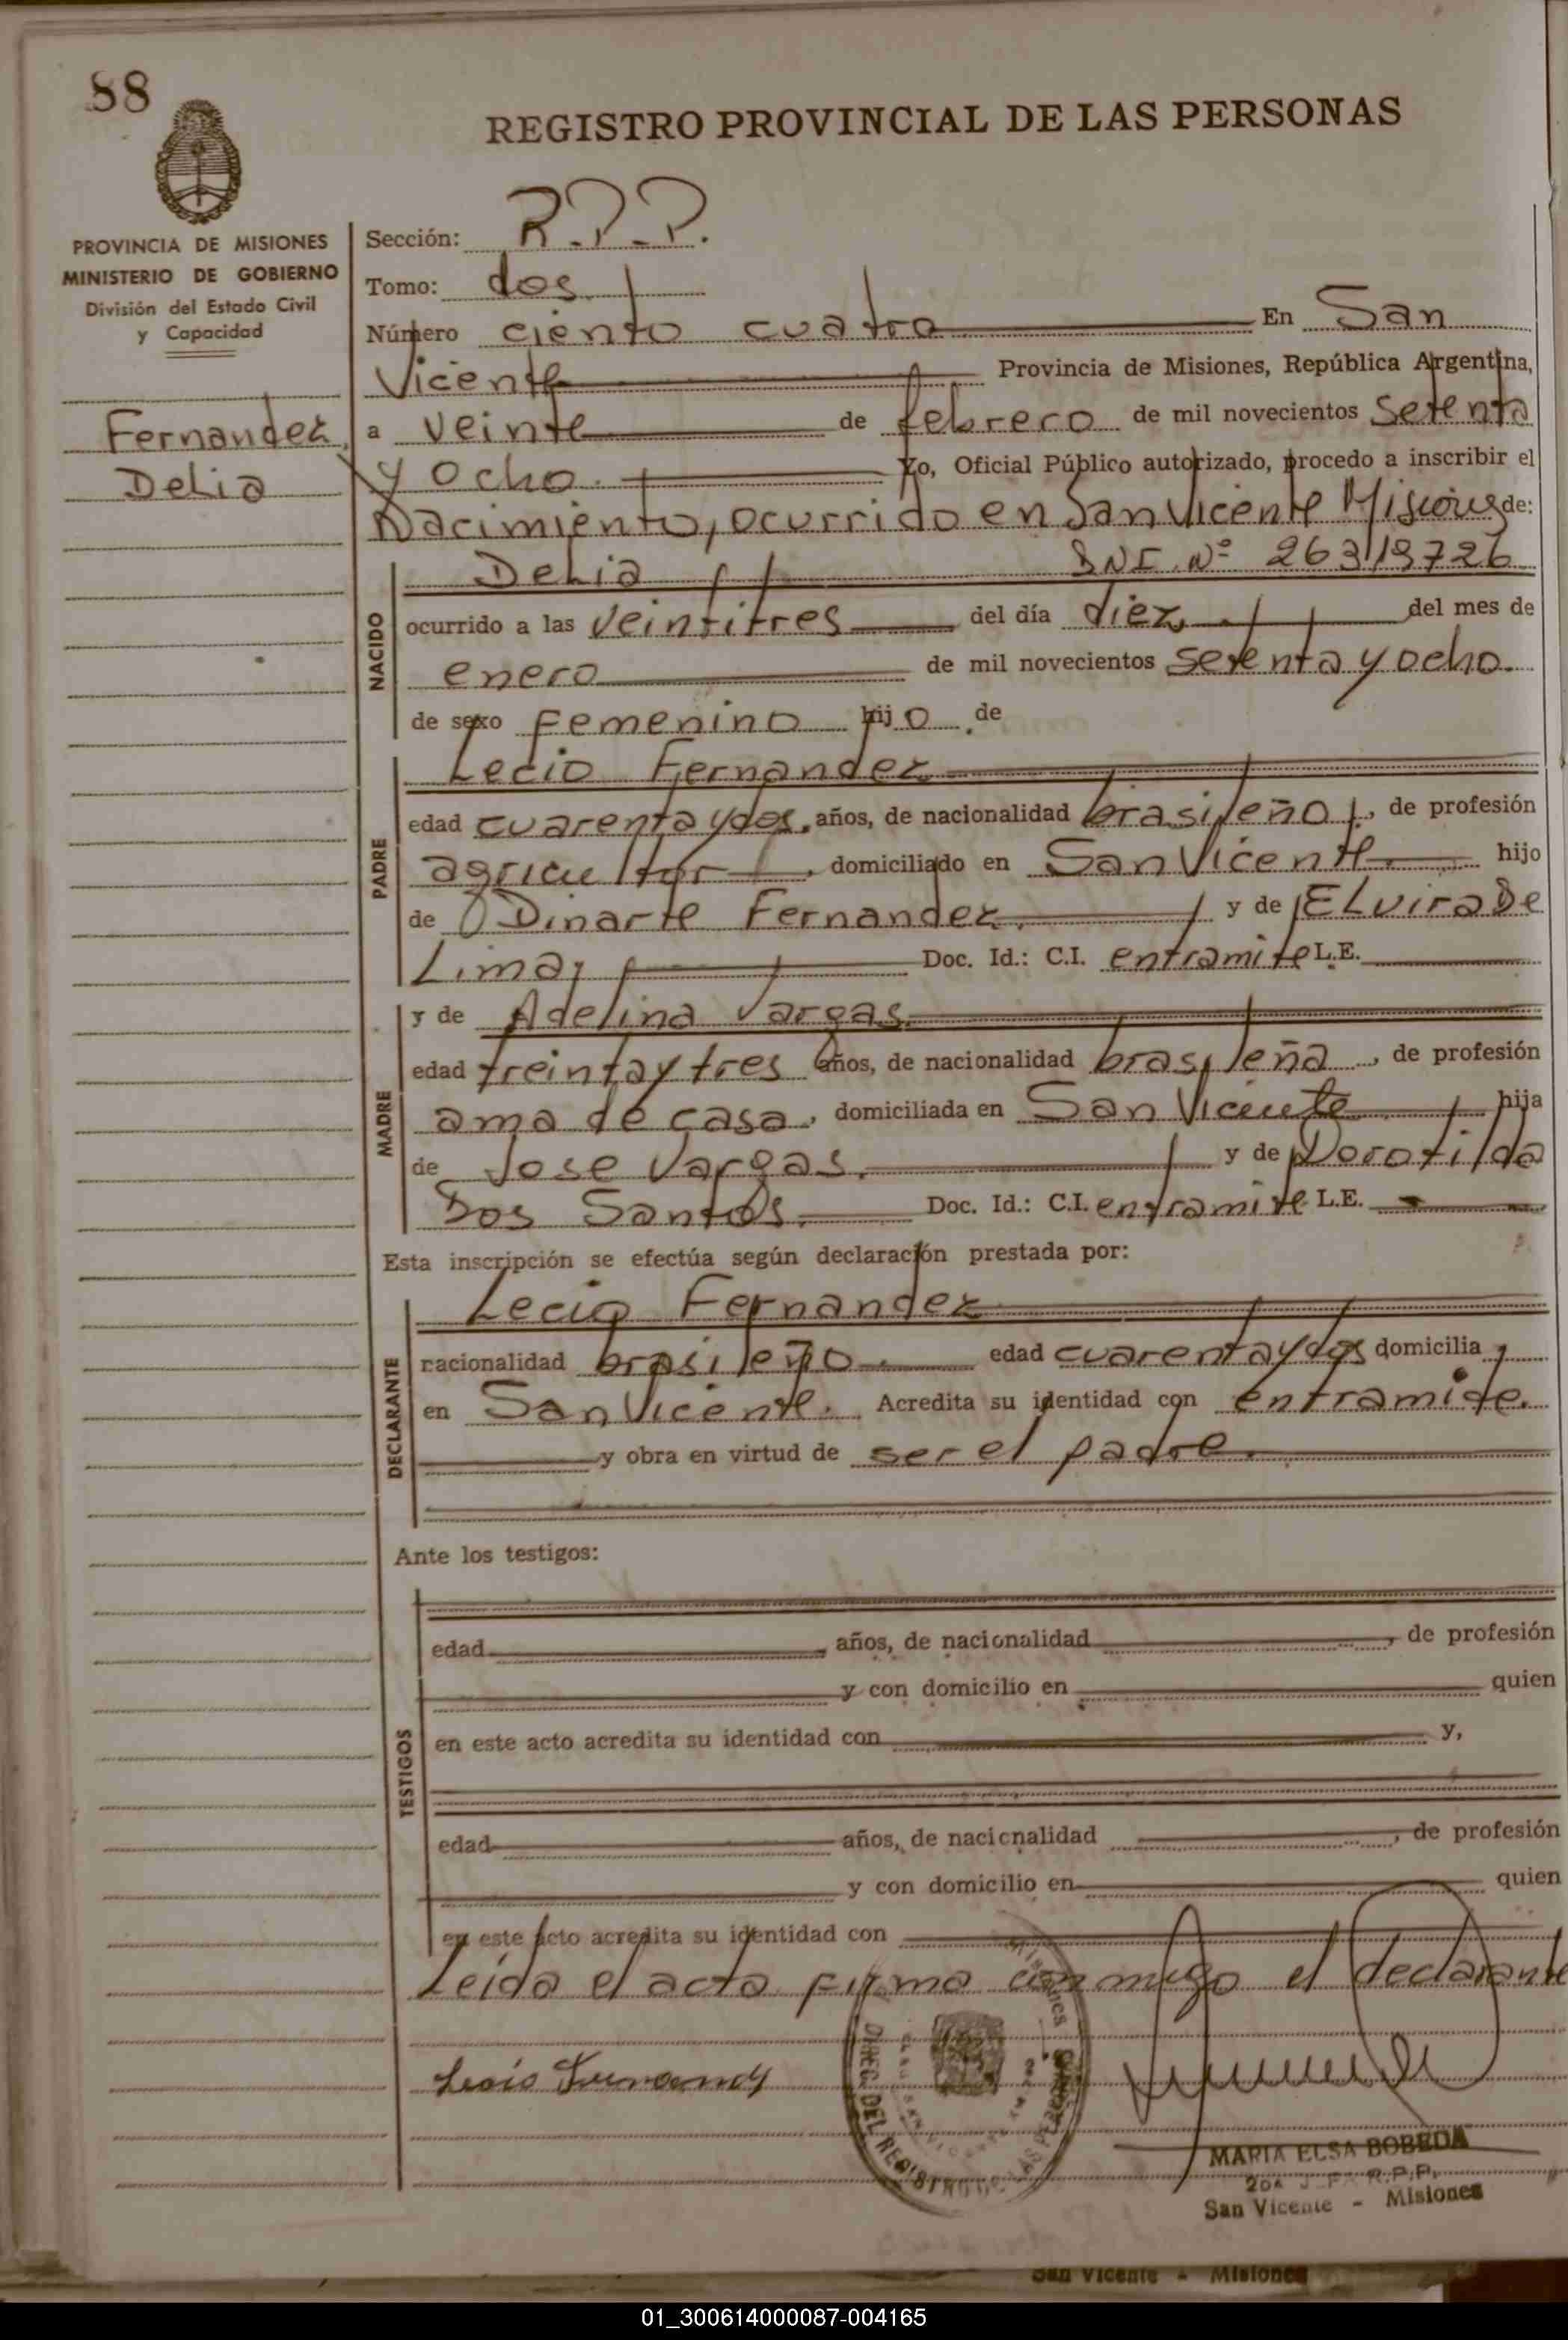 88
REGISTRO PROVINCIAL DE LAS PERSONAS
PROVINCIA DE MISIONES
MINISTERIO DE GOBIERNO
División del Estado Civil
y Capacidad
Fernandez,
Delia
Sección: R.P.P.
Tomo: dos
Número ciento cuatro En San
Vicente Provincia de Misiones, República Argentina,
a veinte de febrero de mil novecientos setenta
y ocho. Yo, Oficial Público autorizado, procedo a inscribir el
Nacimiento, ocurrido en San Vicente Misiones de:
NACIDO
Delia D.N.I. Nº 26319726
ocurrido a las veintitres del día diez, del mes de
enero de mil novecientos setenta y ocho.
de sexo femenino hijo de
PADRE
Lecio Fernandez
edad cuarenta y dos, años, de nacionalidad brasileño, de profesión
agricultor, domiciliado en San Vicente. hijo
de Dinarte Fernandez. y de Elvira De
Lima, Doc. Id.: C.I. entramite L.E.
MADRE
y de Adelina Vargas.
edad treinta y tres años, de nacionalidad brasileña, de profesión
ama de casa, domiciliada en San Vicente hija
de Jose Vargas. y de Dorotilda
Dos Santos. Doc. Id.: C.I. entramite L.E.
Esta inscripción se efectúa según declaración prestada por:
DECLARANTE
Lecio Fernandez
nacionalidad brasileño. edad cuarenta y dos domicilia
en San Vicente. Acredita su identidad con entramite.
y obra en virtud de ser el padre.
Ante los testigos:
TESTIGOS
edad años, de nacionalidad , de profesión
y con domicilio en quien
en este acto acredita su identidad con y,
edad años, de nacionalidad , de profesión
y con domicilio en quien
en este acto acredita su identidad con
Leida el acta firma conmigo el declarante
DIREC. DEL REGISTRO
MARIA ELSA BOBEDA
R.P.P.
San Vicente - Misiones
San Vicente - Misiones
01_300614000087-004165